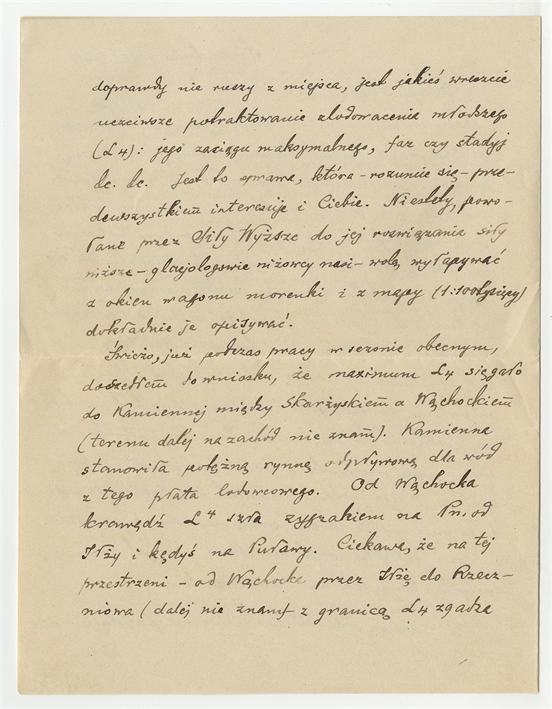 doprawdy nie ruszy z miejsca, jest jakieś wreszcie
uczciwsze potraktowanie zlodowacenia młodszego
(L4): jego zasięgu maksymalnego, faz czy stadyj
&c. &c. Jest to sprawa, która – rozumie się – prze-
dewszystkiem interesuje i Ciebie. Niestety, powo-
łane przez Siły Wyższe do jej rozwiązania siły
niższe – glacjologowie niżowcy nasi – wolą wyłapywać
z okien wagonu morenki i z mapy (1:100tysięcy)
dokładnie je opisywać.
Świeżo, już podczas pracy w sezonie obecnym,
doszedłem do wniosku, że maximum L4 sięgało
do Kamiennej między Skarżyskiem a Wąchockiem
(terenu dalej na zachód nie znam). Kamienna
stanowiła potężną rynnę odpływową dla wód
z tego płata lodowcowego. Od Wąchocka
krawędź L4 szła zygzakiem na Pn. od
Iłży i kędyś na Puławy. Ciekawe, że na tej
przestrzeni – od Wąchocka przez Iłżę do Rzecz-
niowa (dalej nie znam) – z granicą L4 zgadza